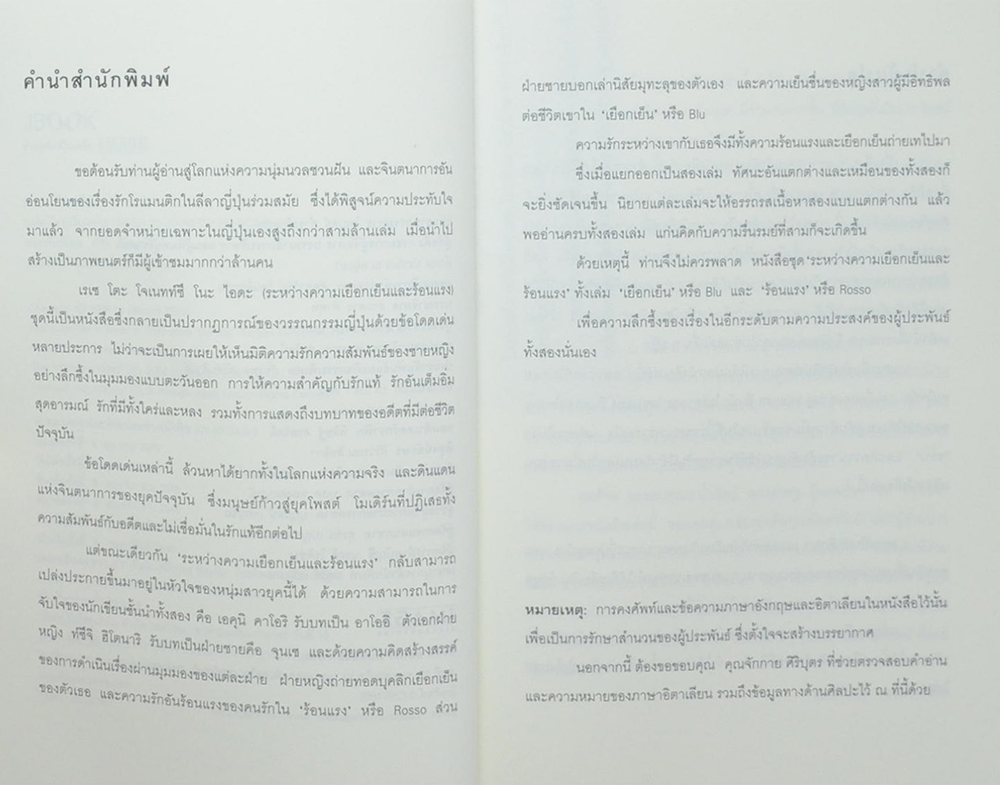 คำนำสำนักพิมพ์
ขอต้อนรับท่านผู้อ่านสู่โลกแห่งความนุ่มนวลชวนฝัน และจินตนาการอัน
อ่อนโยนของเรื่องรักโรแมนติกในลีลาญี่ปุ่นร่วมสมัย ซึ่งได้พิสูจน์ความประทับใจ
มาแล้ว จากยอดจำหน่ายเฉพาะในญี่ปุ่นเองสูงถึงกว่าสามล้านเล่ม เมื่อนำไป
สร้างเป็นภาพยนตร์ก็มีผู้เข้าชมมากกว่าล้านคน
เรเซ โตะ โจเนทท์ซึ โนะ ไอดะ (ระหว่างความเยือกเย็นและร้อนแรง)
ชุดนี้เป็นหนังสือซึ่งกลายเป็นปรากฏการณ์ของวรรณกรรมญี่ปุ่นด้วยข้อโดดเด่น
หลายประการ ไม่ว่าจะเป็นการเผยให้เห็นมิติความรักความสัมพันธ์ของชายหญิง
อย่างลึกซึ้งในมุมมองแบบตะวันออก การให้ความสำคัญกับรักแท้ รักอันเต็มอิ่ม
สุดอารมณ์ รักที่มีทั้งใคร่และหลง รวมทั้งการแสดงถึงบทบาทของอดีตที่มีต่อชีวิต
ปัจจุบัน
ข้อโดดเด่นเหล่านี้ ล้วนหาได้ยากทั้งในโลกแห่งความจริง และดินแดน
แห่งจินตนาการของยุคปัจจุบัน ซึ่งมนุษย์ก้าวสู่ยุคโพสต์ โมเดิร์นที่ปฏิเสธทั้ง
ความสัมพันธ์กับอดีตและไม่เชื่อมั่นในรักแท้อีกต่อไป
แต่ขณะเดียวกัน 'ระหว่างความเยือกเย็นและร้อนแรง' กลับสามารถ
เปล่งประกายขึ้นมาอยู่ในหัวใจของหนุ่มสาวยุคนี้ได้ ด้วยความสามารถในการ
จับใจของนักเขียนชั้นนำทั้งสอง คือ เอคุนิ คาโอริ รับบทเป็น อาโออิ ตัวเอกฝ่าย
หญิง ทัซึจิ ฮิโตนาริ รับบทเป็นฝ่ายชายคือ จุนเซ และด้วยความคิดสร้างสรรค์
ของการดำเนินเรื่องผ่านมุมมองของแต่ละฝ่าย ฝ่ายหญิงถ่ายทอดบุคลิกเยือกเย็น
ของตัวเธอ และความรักอันร้อนแรงของคนรักใน 'ร้อนแรง' หรือ Rosso ส่วน
ฝ่ายชายบอกเล่านิสัยมุทะลุของตัวเอง และความเย็นชื่นของหญิงสาวผู้มีอิทธิพล
ต่อชีวิตเขาใน 'เยือกเย็น' หรือ Blu
ความรักระหว่างเขากับเธอจึงมีทั้งความร้อนแรงและเยือกเย็นถ่ายเทไปมา
ซึ่งเมื่อแยกออกเป็นสองเล่ม ทัศนะอันแตกต่างและเหมือนของทั้งสองก็
จะยิ่งชัดเจนขึ้น นิยายแต่ละเล่มจะให้อรรถรสเนื้อหาสองแบบแตกต่างกัน แล้ว
พออ่านครบทั้งสองเล่ม แก่นคิดกับความรื่นรมย์ที่สามก็จะเกิดขึ้น
ด้วยเหตุนี้ ท่านจึงไม่ควรพลาด หนังสือชุด 'ระหว่างความเยือกเย็นและ
ร้อนแรง' ทั้งเล่ม 'เยือกเย็น' หรือ Blu และ 'ร้อนแรง' หรือ Rosso
เพื่อความลึกซึ้งของเรื่องในอีกระดับตามความประสงค์ของผู้ประพันธ์
ทั้งสองนั่นเอง
หมายเหตุ: การคงศัพท์และข้อความภาษาอังกฤษและอิตาเลียนในหนังสือไว้นั้น
เพื่อเป็นการรักษาสำนวนของผู้ประพันธ์ ซึ่งตั้งใจจะสร้างบรรยากาศ
นอกจากนี้ ต้องขอขอบคุณ คุณจักกาย ศิริบุตร ที่ช่วยตรวจสอบคำอ่าน
และความหมายของภาษาอิตาเลียน รวมถึงข้อมูลทางด้านศิลปะไว้ ณ ที่นี้ด้วย